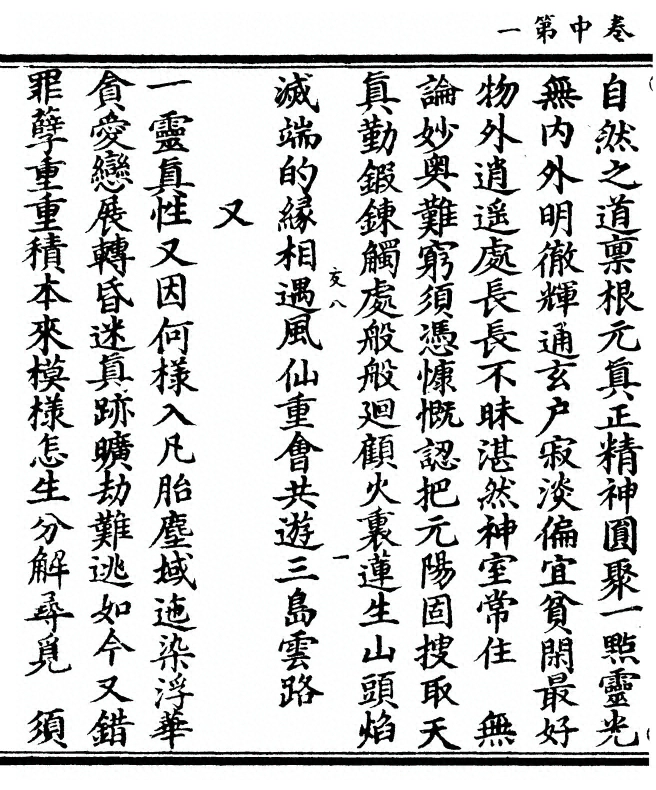 卷中第一
自然之道稟根元真正精神圓聚一點靈光
無內外明徹輝通玄戶寂淡偏宜貧閑最好
物外逍遥處長長不昧湛然神室常住　無
論妙奧難窮須憑慷慨認把元陽固搜取天
真勤鍛鍊觸處般般廻顧火裏蓮生山頭焰
友八
一
滅端的緣相遇風仙重會共遊三島雲路
又
一靈真性又因何樣入凡胎塵域迤染浮華
貪愛戀展轉昏迷真跡曠劫難逃如今又錯
罪孽重重積本來模樣怎生分解尋覓　須